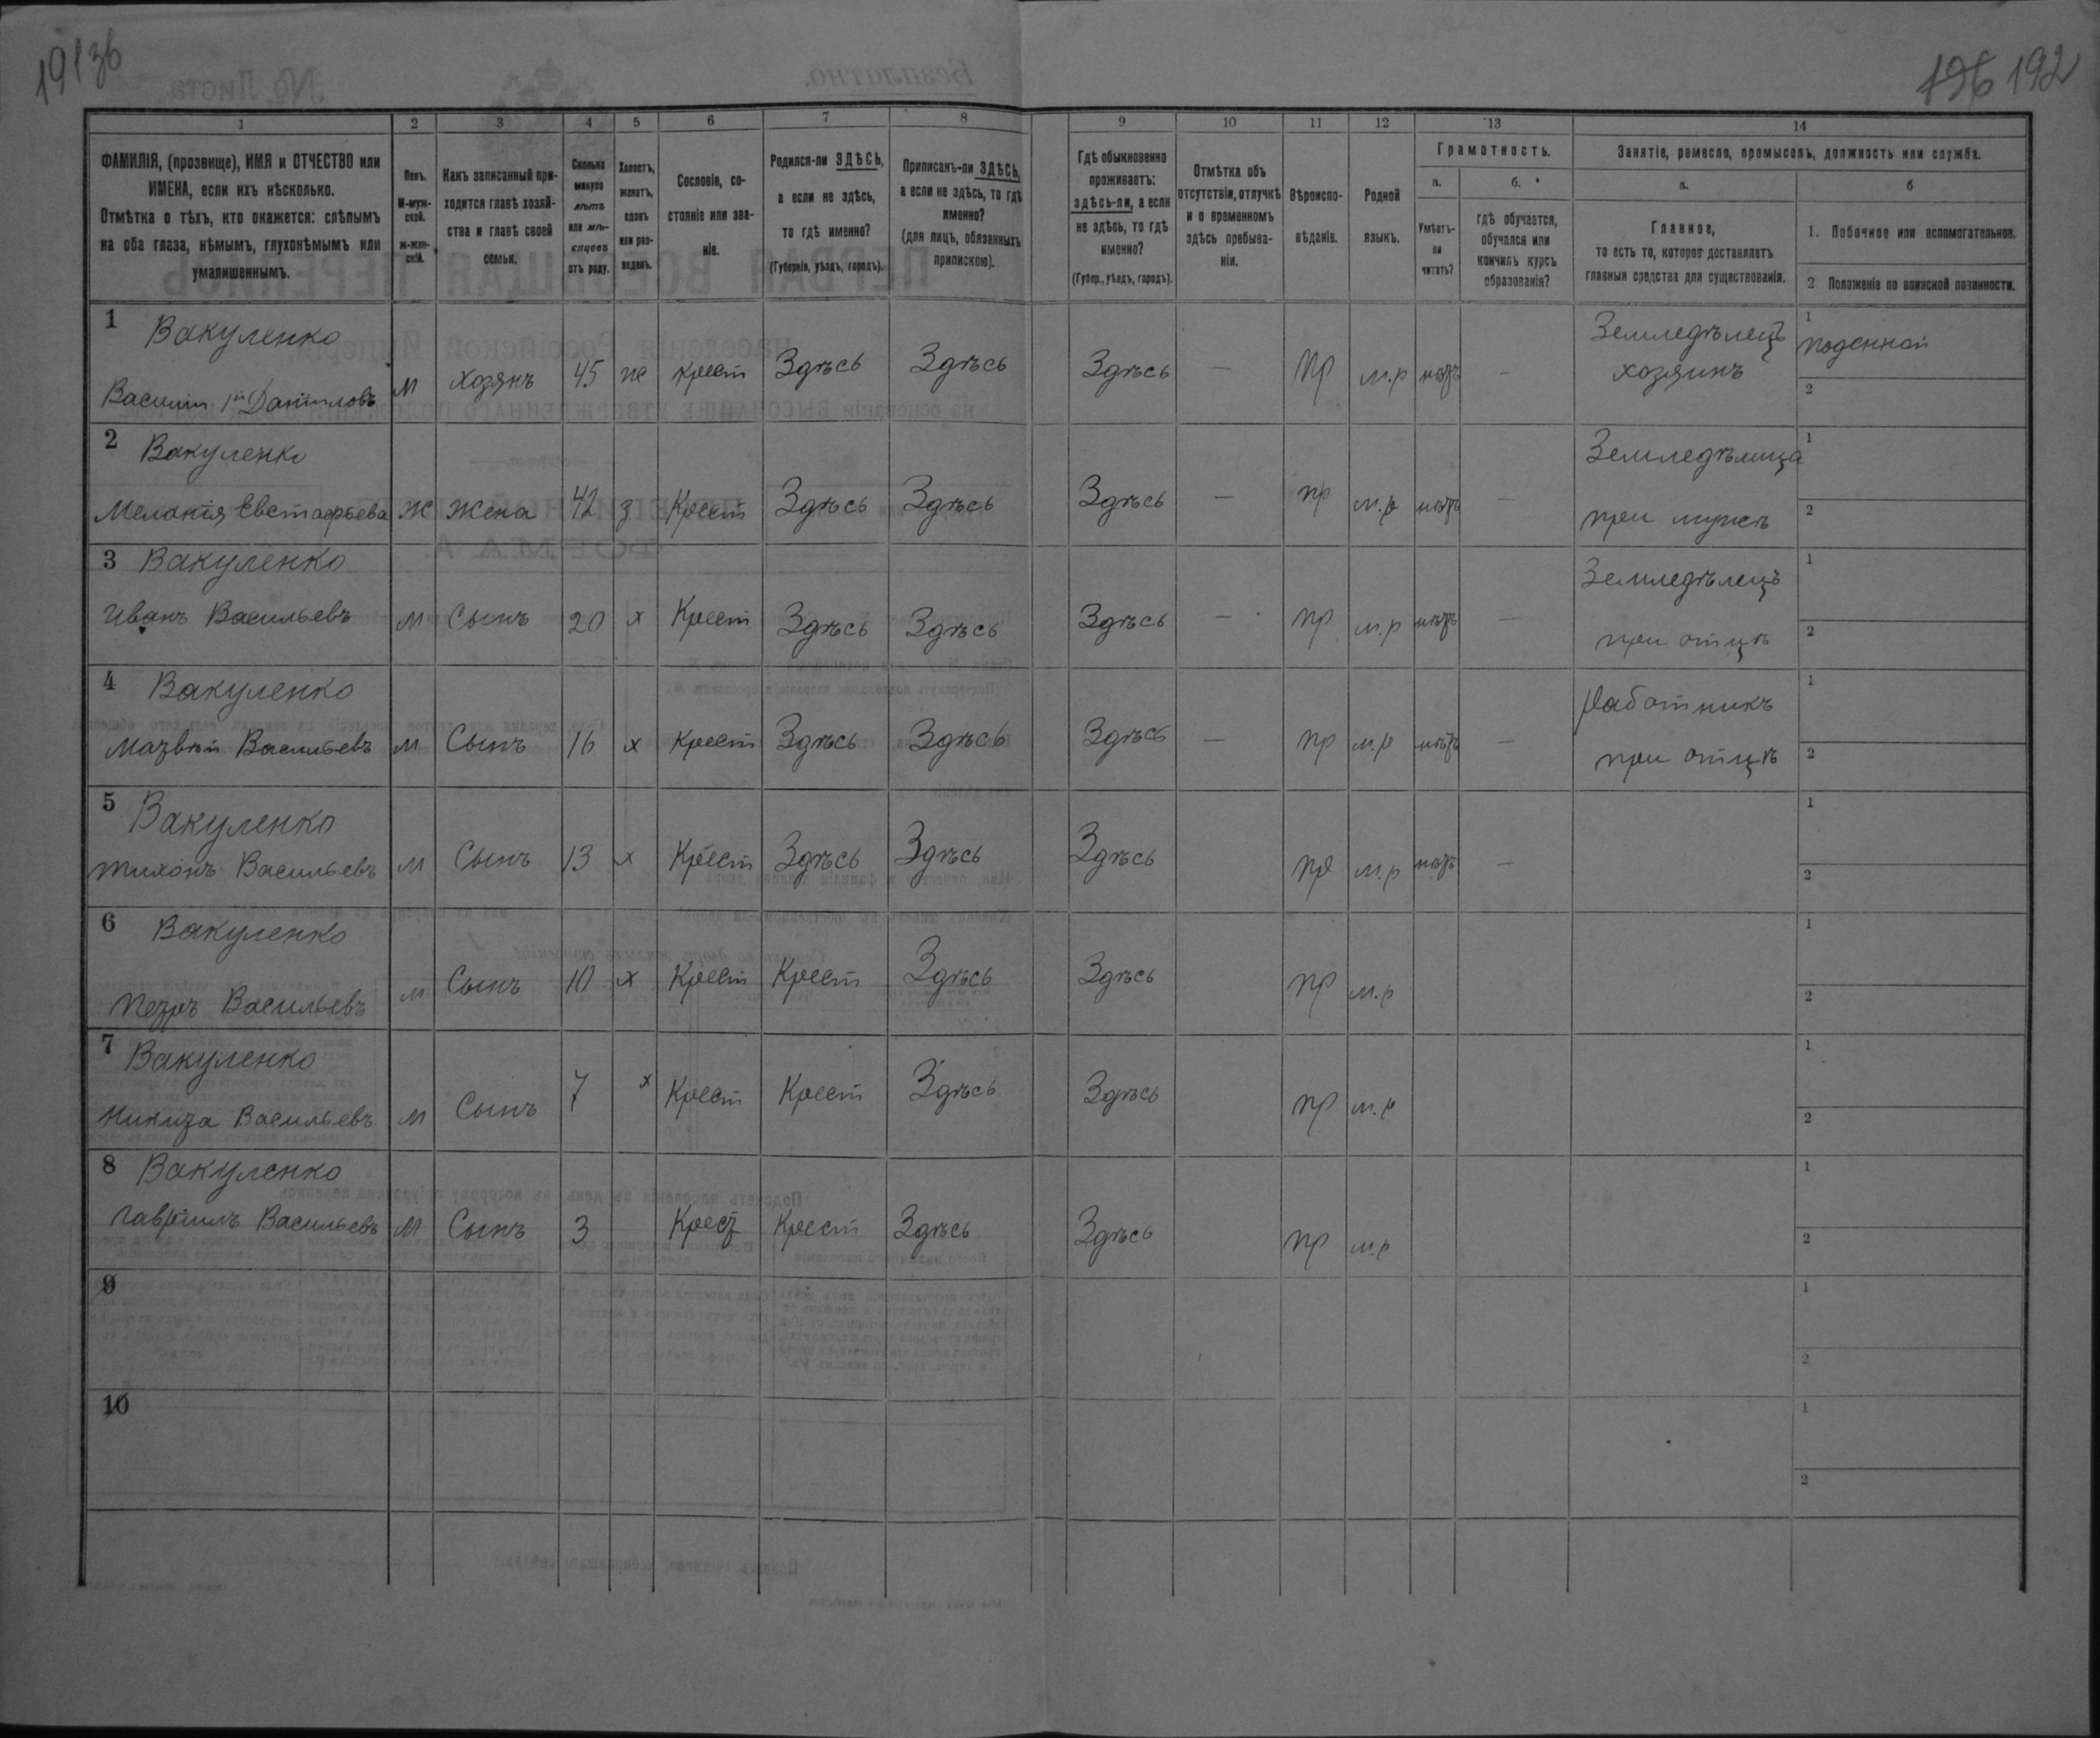 191зб
196 192
1 2 3 4 5 6 7 8 9 10 11 12 13 14
ФАМИЛІЯ, (прозвище), ИМЯ и ОТЧЕСТВО или
ИМЕНА, если ихъ нѣсколько.
Отмѣтка о тѣхъ, кто окажется: слѣпымъ
на оба глаза, нѣмымъ, глухонѣмымъ или
умалишеннымъ.
Полъ.
М-муж-
ской.
ж-жен-
скій.
Какъ записанный при-
ходится главѣ хозяй-
ства и главѣ своей
семьи.
Сколько
минуло
лѣтъ
или мѣ-
сяцевъ
отъ роду.
Холостъ,
женатъ,
вдовъ
или раз-
веденъ.
Сословіе, со-
стояніе или зва-
ніе.
Родился-ли ЗДѢСЬ,
а если не здѣсь,
то гдѣ именно?
(Губернія, уѣздъ, городъ).
Приписанъ-ли ЗДѢСЬ,
а если не здѣсь, то гдѣ
именно?
(для лицъ, обязанныхъ
припискою).
Гдѣ обыкновенно
проживаетъ:
здѣсь-ли, а если
не здѣсь, то гдѣ
именно?
(Губер., уѣздъ, городъ).
Отмѣтка объ
отсутствіи, отлучкѣ
и о временномъ
здѣсь пребыва-
ніи.
Вѣроиспо-
вѣданіе.
Родной
языкъ.
Грамотность.
а. б.
Умѣетъ-
ли
читать?
гдѣ обучается,
обучался или
кончилъ курсъ
образованія?
Занятіе, ремесло, промыселъ, должность или служба.
а. б
Главное,
то есть то, которое доставляетъ
главныя средства для существованія.
1. Побочное или вспомогательное.
2 Положеніе по воинской повинности.
1 Вакуленко Земледѣлецъ 1 поденной
Василій 1й Даниловъ М хозянъ 45 же крест Здѣсь Здѣсь Здѣсь — Пр м.р нѣтъ — хозяинъ 2
2 Вакуленко Земледѣлица 1
Меланія Евстафьева Ж Жена 42 з Крест Здѣсь Здѣсь Здѣсь — пр м.р нѣтъ — при мужѣ 2
3 Вакуленко Земледѣлецъ 1
Иванъ Васильевъ М Сынъ 20 х Крест Здѣсь Здѣсь Здѣсь — пр м.р нѣтъ — при отцѣ 2
4 Вакуленко Работникъ 1
Матвѣй Васильевъ М Сынъ 16 х Крест Здѣсь Здѣсь Здѣсь — пр м.р нѣтъ — при отцѣ 2
5 Вакуленко 1
Тихонъ Васильевъ М Сынъ 13 х Крест Здѣсь Здѣсь Здѣсь пр м.р нѣтъ — 2
6 Вакуленко 1
Петръ Васильевъ м Сынъ 10 х Крест Крест Здѣсь Здѣсь пр м.р 2
7 Вакуленко 1
Никита Васильевъ М Сынъ 7 х Крест Крест Здѣсь Здѣсь пр м.р 2
8 Вакуленко 1
Гавріилъ Васильевъ М Сынъ 3 Крест Крест Здѣсь Здѣсь пр м.р 2
9 1
2
10 1
2